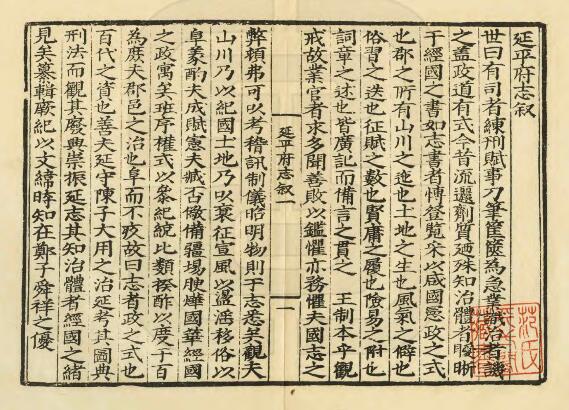 延平府志叙
世曰有司者練刑賦事刀筆筐篋為急業識治者譏
之盖政道有式今昔流還劑質廼殊知治體者服晰
于經國之書如志書者博登覧采以咸國愿政之式
也郡之所有山川之迄也土地之生也風氣之僻也
俗習之迭也征賦之數也賢庸之履也險易之附也
詞章之述也皆廣記而備言之貫之 王制本乎觀
戒故業官者求多聞善敗以鑑懼亦務懼夫國志之
延平府志叙 一
弊頼弗可以考稽訊制儀昭明物則于志悉矣觀夫
山川乃以紀國土地乃以裒征宣風以盪活移俗以
阜蒙酌夫成賦憲夫臧否儆備疆埸腴燁國華經國
之政寓矣班序權式以叅紀綂比類揆酢以度于百
為庶夫郡邑之治也阜而不疚故曰志者政之式也
百代之資也善夫延守陳子大用之治延考其圖典
刑法而觀其廢典崇振延志其知治體者經國之緒
見矣纂輯厥紀以文締時知在鄭子舜祥之優
范氏